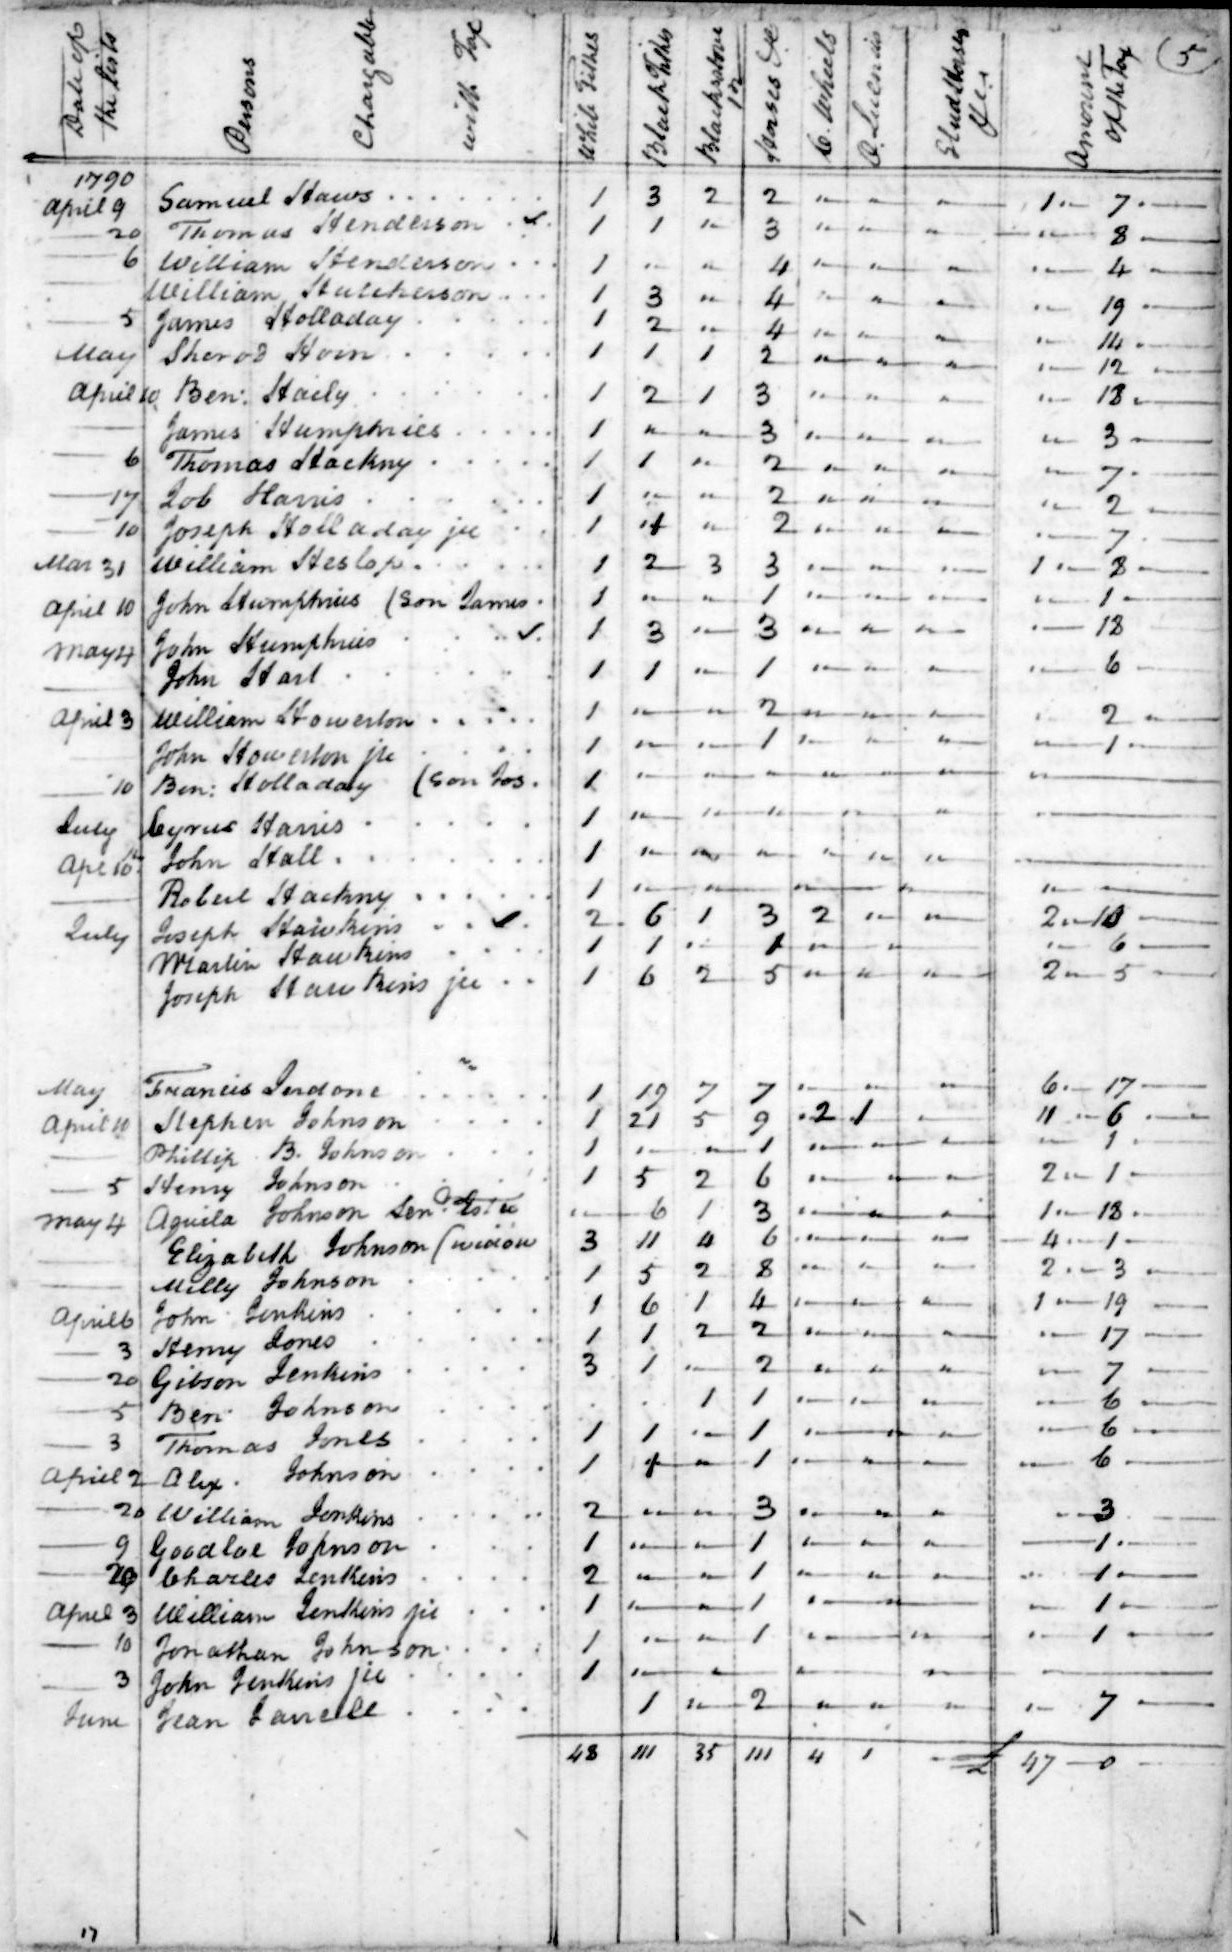 Date of the Lists Persons Chargable with Tax White Tithes Black Tithes Blacks above 12 Horses &c C. Wheels O. Licenses Stud Horses &c. Amount of the Tax (5)
1790
April 9 Samuel Haws . . . . . . . 1 3 2 2 " " " 1 " 7
— 20 Thomas Henderson . ✓ . 1 1 " 3 " " " " 8
— 6 William Henderson . . . 1 " " 4 " " " " 4
William Hutcherson . . . 1 3 " 4 " " " " 19
— 5 James Holladay . . . . . 1 2 " 4 " " " " 14
May Sherod Horn . . . . . . 1 1 1 2 " " " " 12
April 10 Ben: Haily . . . . . . 1 2 1 3 " " " " 18
— James Humphries . . . . . 1 " " 3 " " " " 3
— 6 Thomas Hackny . . . . . 1 1 " 2 " " " " 7
— 17 Job Harris . . . . . . 1 " " 2 " " " " 2
— 10 Joseph Holladay jr . . 1 1 " 2 " " " " 7
Mar 31 William Heslop . . . . . 1 2 3 3 " " " 1 " 8
April 10 John Humphries (Son James . 1 " " 1 " " " " 1
May 4 John Humphries . . . ✓ . 1 3 " 3 " " " " 18
— John Hart . . . . . . 1 1 " 1 " " " " 6
April 3 William Howerton . . . . . 1 " " 2 " " " " 2
— John Howerton jr . . . . 1 " " 1 " " " " 1
— 10 Ben: Holladay (Son Jos . 1 " " " " " " "
July Cyrus Harris . . . . . 1 " " " " " "
Apl 10th John Hall . . . . . . . 1 " " " " " "
— Robert Hackny . . . . . . 1 " " " " "
July Joseph Hawkins . . ✓ . 2 6 1 3 2 " " 2 " 10
Martin Hawkins . . . . 1 1 " 1 " " " 6
Joseph Hawkins jr . . 1 6 2 5 " " " 2 " 5
May Francis Jerdone . . . . . . 1 19 7 7 " " " 6 " 17
April 10 Stephen Johnson . . . . 1 21 5 9 2 1 11 " 6
— Phillip B. Johnson . . . . 1 " " 1 " " " " 1
— 5 Henry Johnson . . . . . 1 5 2 6 " " " 2 " 1
May 4 Aquila Johnson Senr. Este " 6 1 3 " " " 1 " 18
Elizabeth Johnson (widow 3 11 4 6 " " " 4 " 1
— Milly Johnson . . . . . 1 5 2 8 " " " 2 " 3
April 6 John Jenkins . . . . . 1 6 1 4 " " " 1 " 19
— 3 Henry Jones . . . . . 1 1 2 2 " " " " 17
— 20 Gibson Jenkins . . . . 3 1 " 2 " " " " 7
— 5 Ben: Johnson . . . . . . 1 1 " " " " 6
— 3 Thomas Jones . . . . 1 1 " 1 " " " " 6
April 2 Alex. Johnson . . . . . 1 1 " 1 " " " " 6
— 20 William Jenkins . . . . . 2 " " 3 " " " " 3
— 9 Goodloe Johnson . . . . 1 " " 1 " " " 1
— 20 Charles Jenkins . . . . 2 " " 1 " " " " 1
April 3 William Jenkins jr . . . 1 " " 1 " " " 1
— 10 Jonathan Johnson . . . . 1 " " 1 " " " 1
— 3 John Jenkins jr . . . . 1 " " " " "
June Jean . . . . 1 " 2 " " " " 7
48 111 35 111 4 1 " £ 47 — 0
17